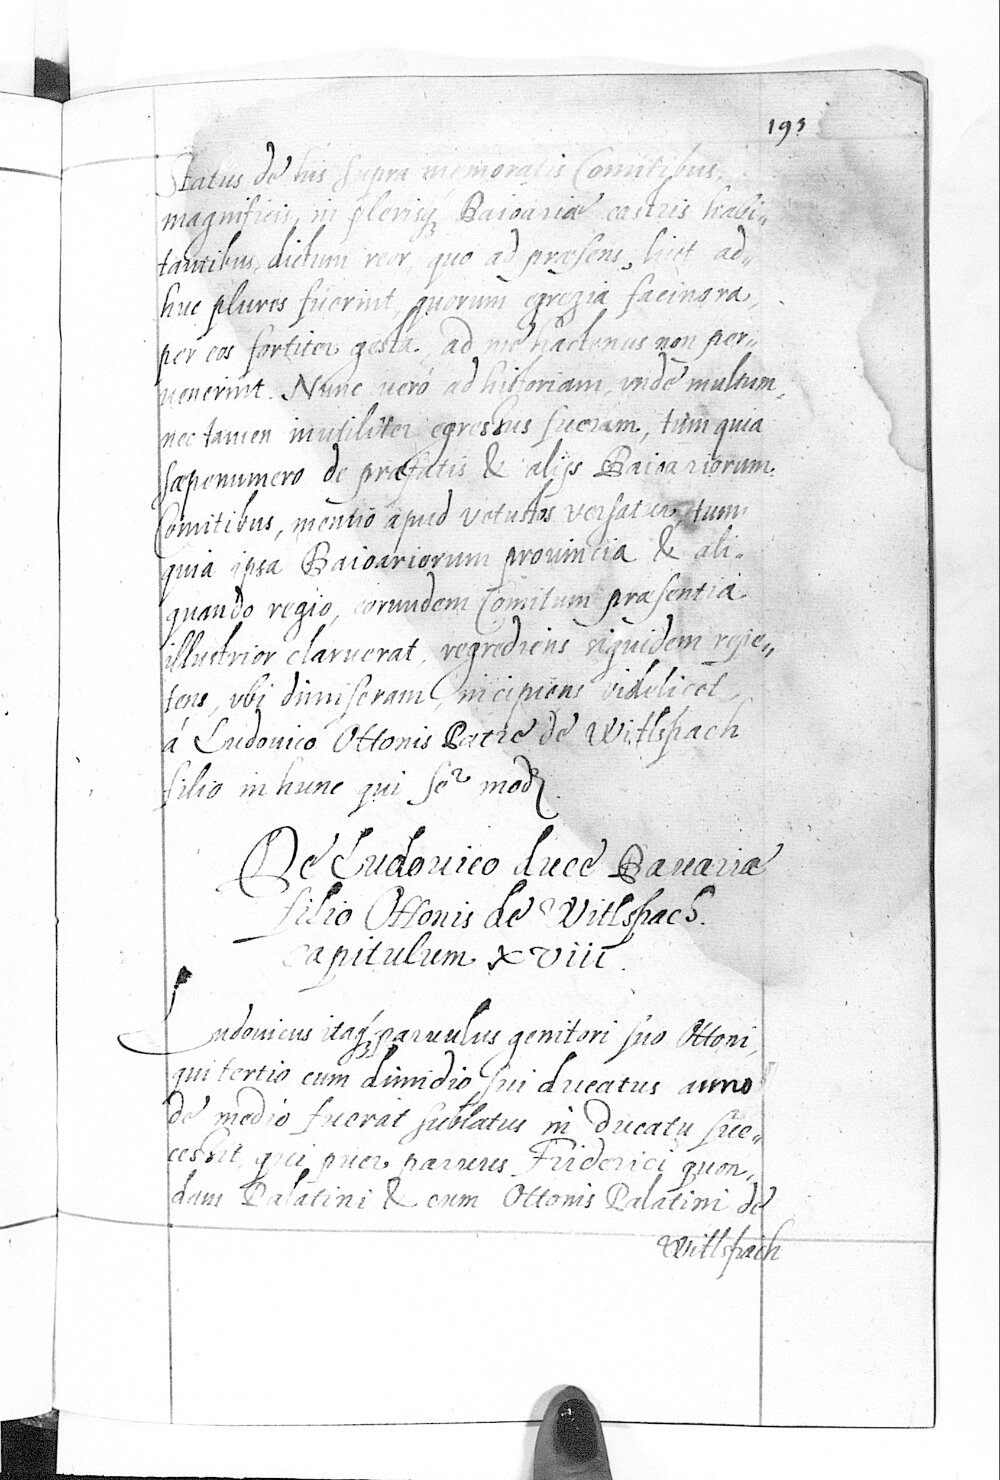 193
Status de his supra memoratis Comitibus,
magnificis, in plerisq Baioariæ castris habi„
tantibus, dictum reor, quo ad præsens, licet ad„
huc plures fuerint, quorum egregia facinora,
per eos fortiter gesta, ad me hactenus non per„
venerint. Nunc veró ad historiam, vnde multum,
nec tamen inutiliter egressus fueram, tum quia
sæpenumero de præfatis & alijs Baioariorum
Comitibus, mentio apud vetustos versatur, tum
quia ipsa Baioariorum prouincia & ali„
quando regio, eorundem Comitum præsentia
illustrior claruerat, regrediens siquidem repe„
tens, vbi dimiseram, incipiens videlicet,
á Ludouico Ottonis Patre de Witlspach
filio in hunc qui ser mod.
De Ludouico duce Bauariæ
filio Ottonis de Witlspach.
capitulum xviii.
Ludouicus itaq paruulus genitori suo Ottoni,
qui tertio cum dimidio sui ducatus anno
de medio fuerat sublatus in Ducatu suc„
cessit, qui puer paruus Friderici quon„
dam Palatini & cum Ottonis Palatini de
Witlspach